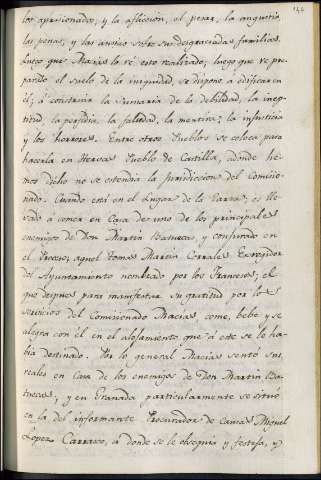 146
los aprisionados, y la aflicción, el pesar, la angustia,
las penas, y las ansias sobre sus desgraciadas familias.
Luego que Macias la vé esto realizado; luego que ve pre-
parado el suelo de la iniquidad se dispone á edificar en
él; á construir la Sumaria de la debilidad, la inep-
titud la perfidia, la falsedad, la mentira; la injusticia
y los horrores. Entre otros Pueblos se coloca para
hacerla en Pueblo de Castilla, adonde he-
mos dicho no se estendia la jurisdiccion del Comisio-
nado. Cuando está en el Lugar de la Garza; es lle-
vado á comer en Casa de uno de los principales
enemigos de Don Martin Batuecas, y confutado en
el Proceso; aquel Tomas Martin Corrales Corregidor
del Ayuntamiento nombrado por los Franceses; el
que despues para manifestar su gratitud por los
servicios del Comisionado Macias, come, bebe y se
alegra con él en el alojamiento que á este se le ha-
bia destinado. Por lo general Macias sentó sus
reales en Casa de los enemigos de Don Martin Ba-
tuecas; y en Granada particularmente se situó
en la del informante Procurador de Causas Miguel
Lopez Carrasco, á donde se le obsequia y festeja, y